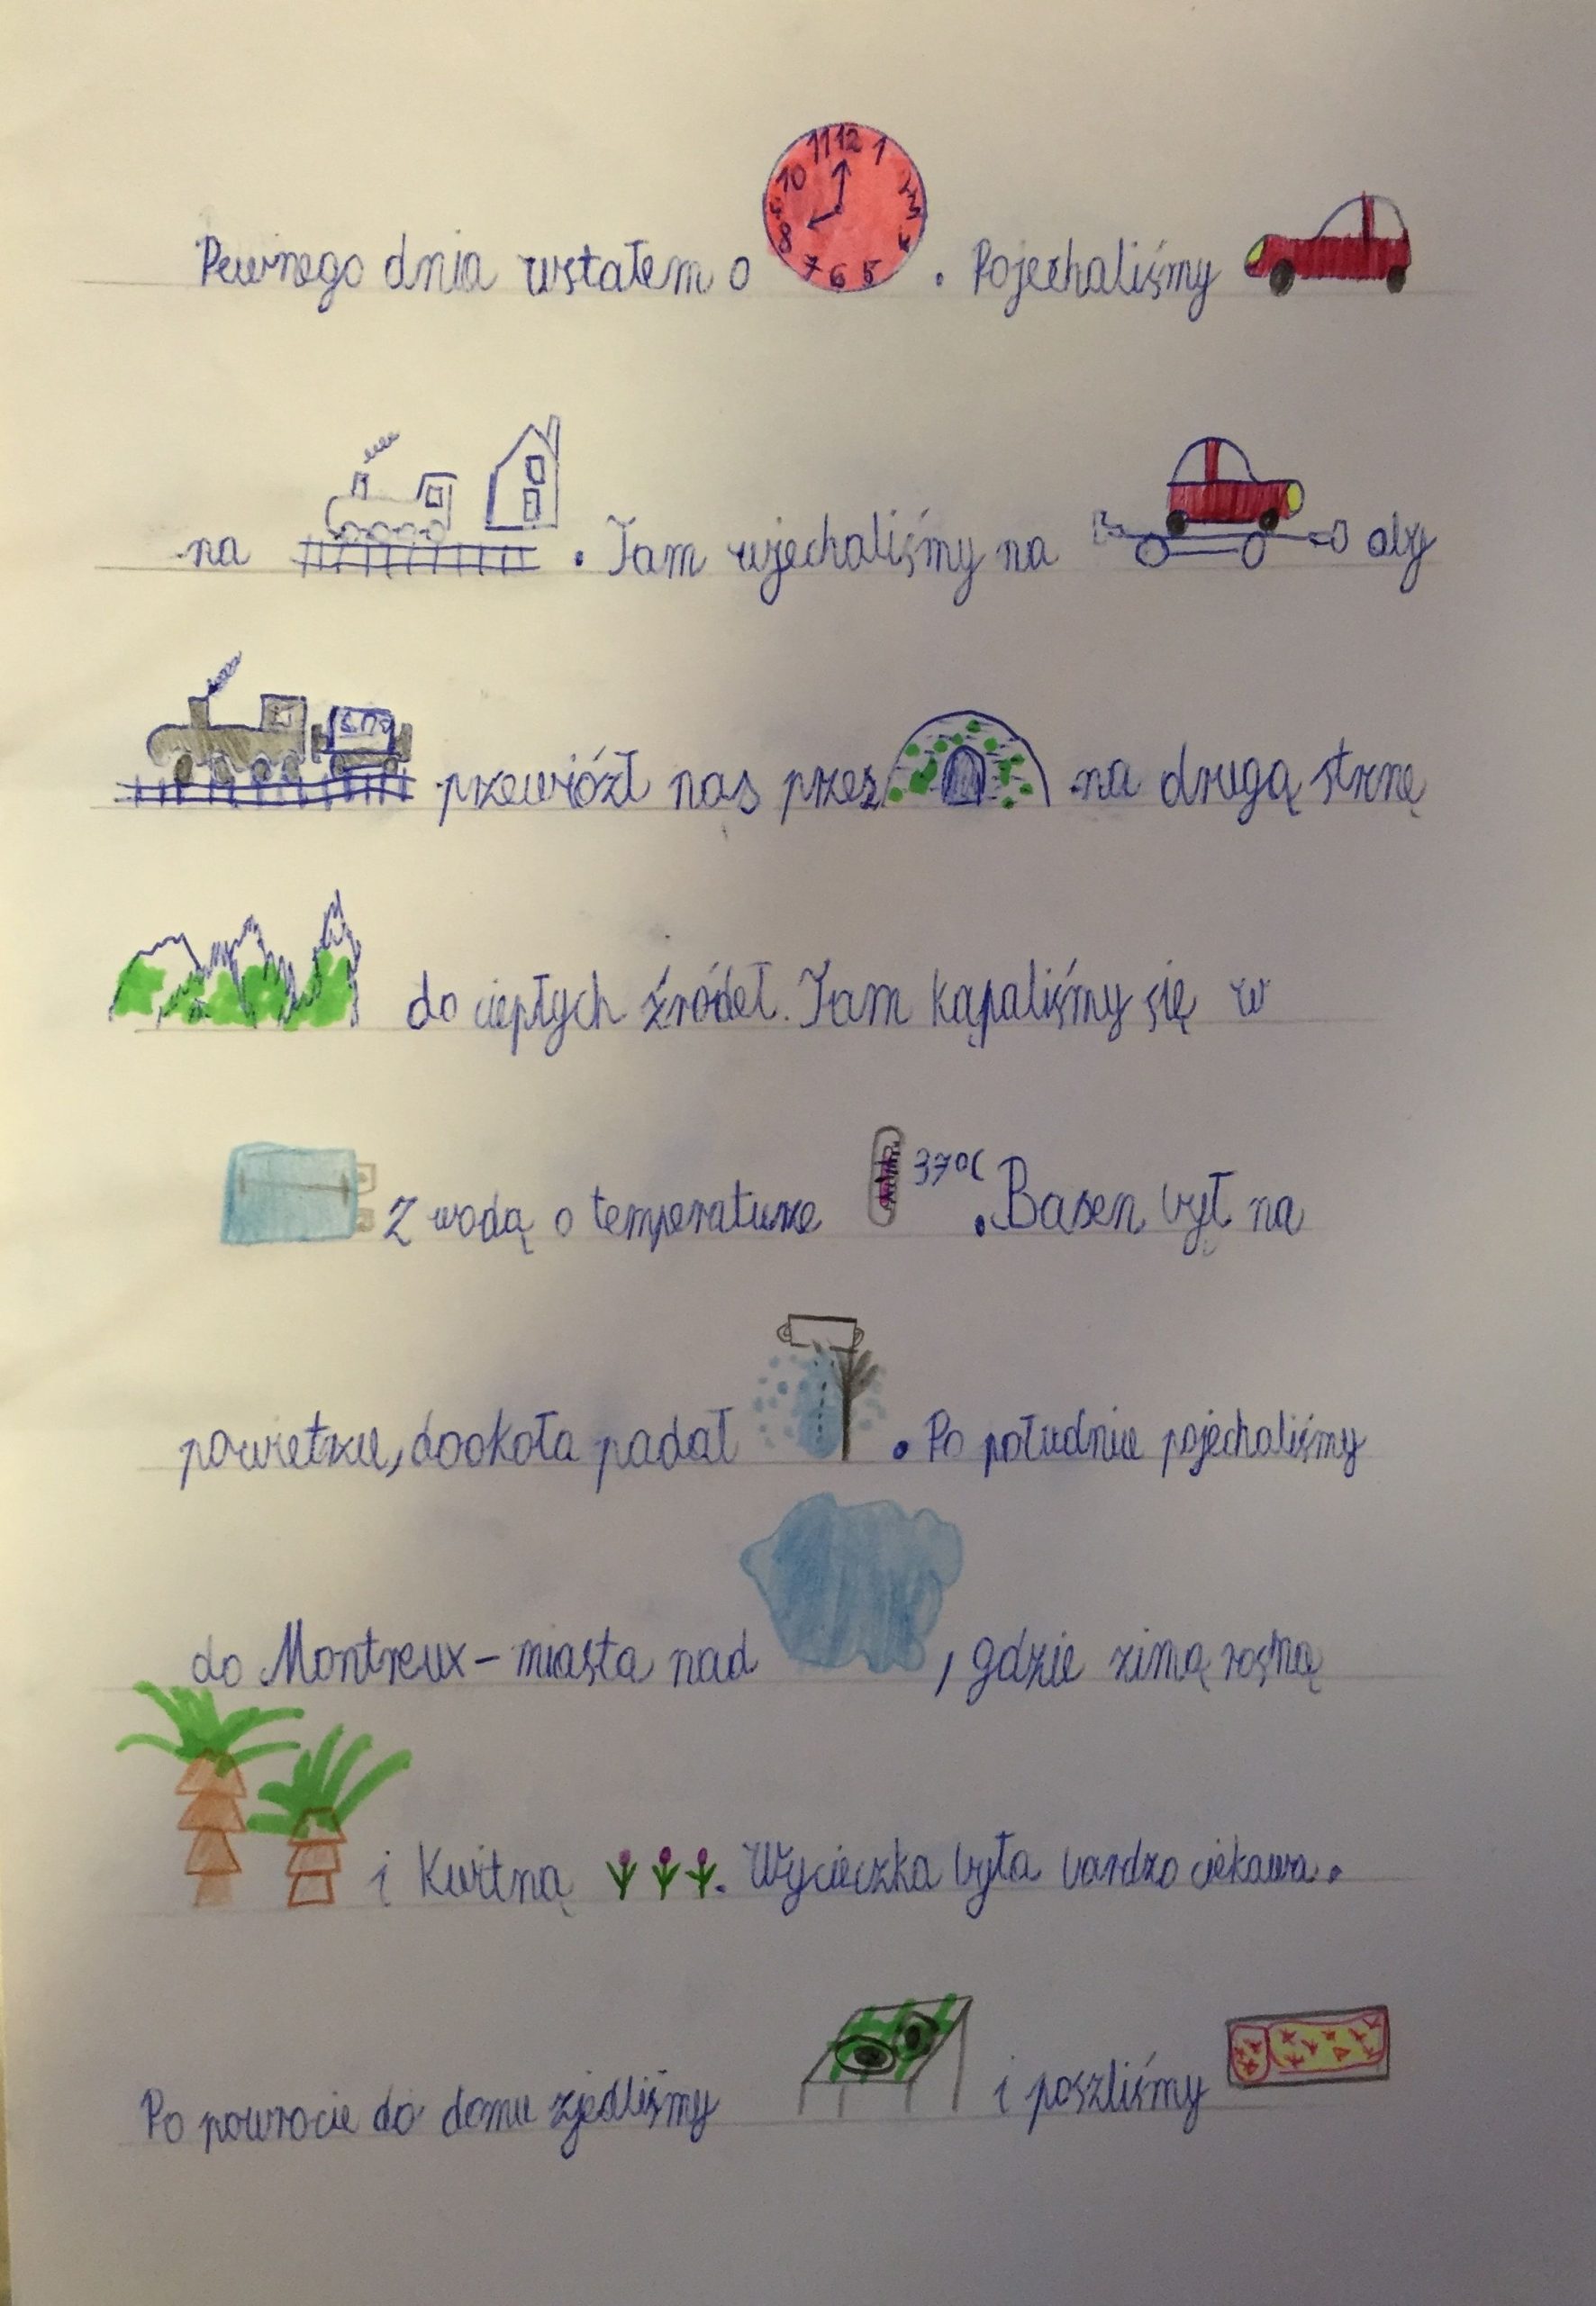 11 12 1
10 2
9 3
8 4
7 6 5
Pewnego dnia wstałem o . Pojechaliśmy
na . Tam wjechaliśmy na aby
przewiózł nas przez na drugą strnę
do ciepłych źródeł. Tam kąpaliśmy się w
z wodą o temperaturze 37°C. Basen był na
powietrzu, dookoła padał . Po południu pojechaliśmy
do Montreux – miasta nad , gdzie zimą rosną
i kwitną . Wycieczka była bardzo ciekawa.
Po powrocie do domu zjedliśmy i poszliśmy